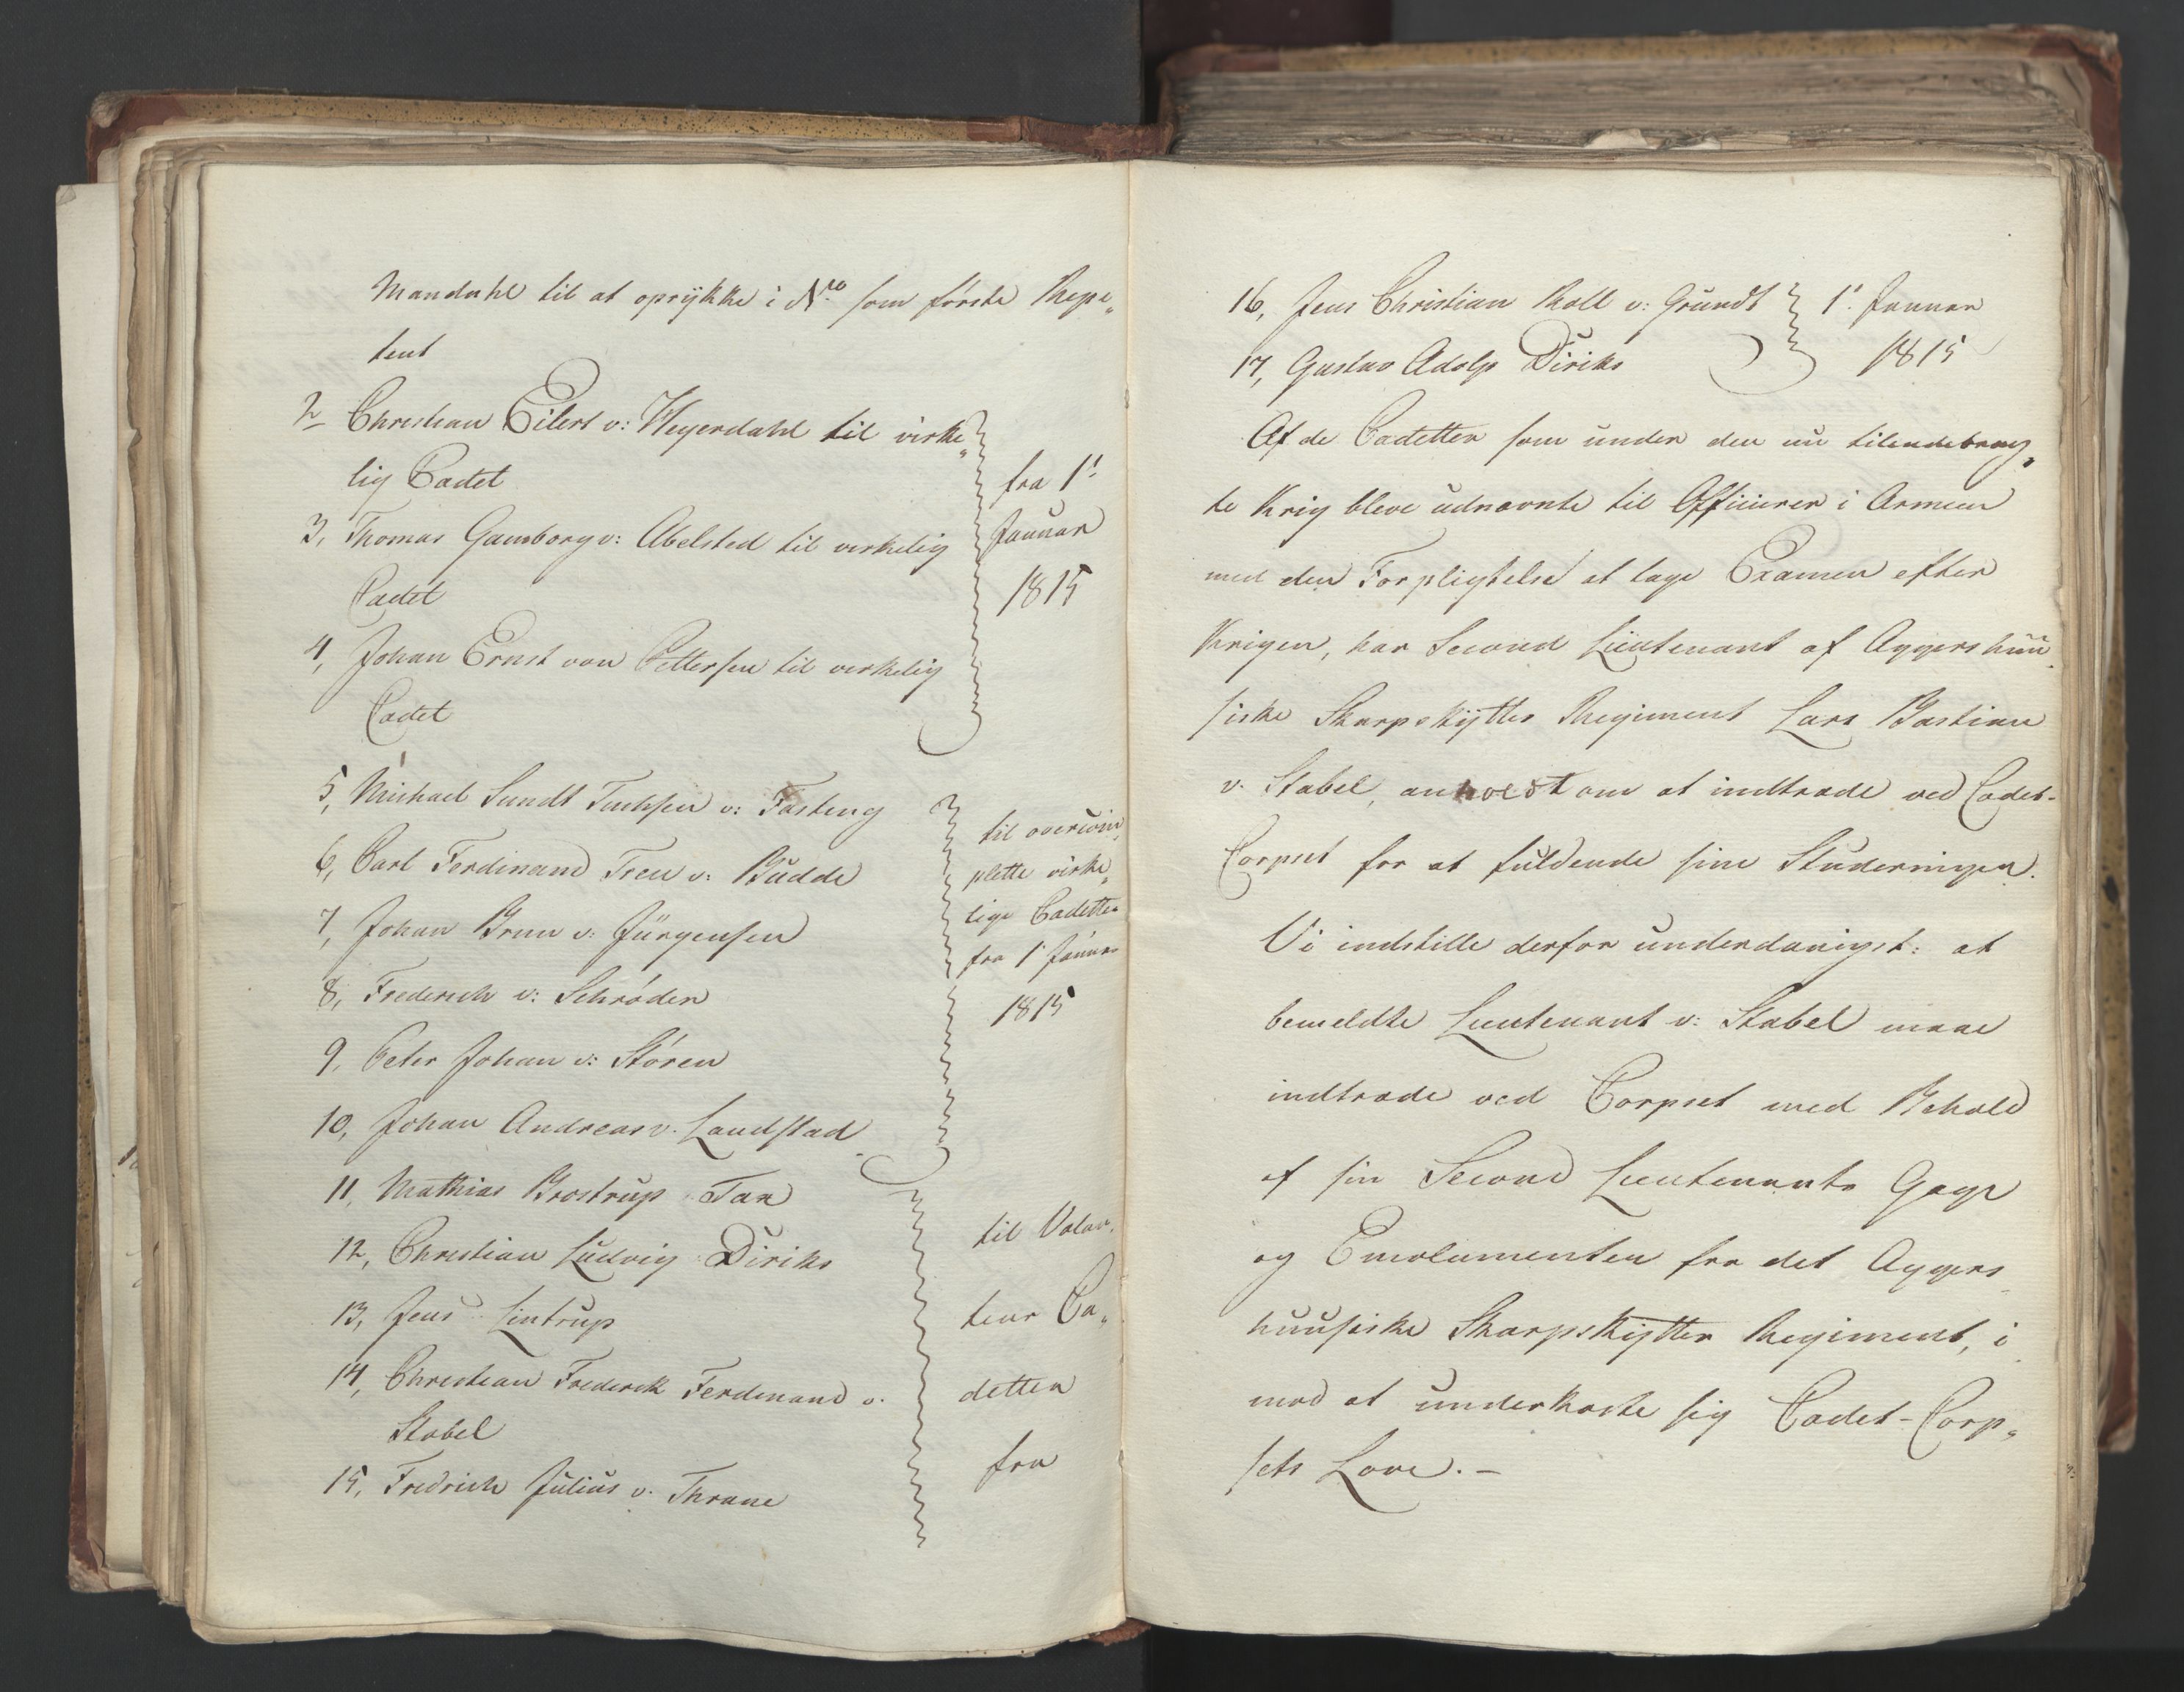 Mandahl til at oprykke i No som første Repe„
tent
2 Christian Eilert v: Heyerdahl til virke„
lig Cadet
3, Thomas Gamborg v: Abelsted til virkelig
Cadet
4, Johan Ernst von Pettersen til virkelig
Cadet
fra 1'
Januar
1815
5, Michael Sundt Tuchsen v: Fasting
6, Carl Ferdinand v: Budde
7, Johan Brun v: Jürgensen
8, Frederich v: Schrøder
9, Peter Johan v: Støren
10, Johan Andreas v. Landstad
til overcom„
plette virke„
lige Cadetter
fra 1' Januar
1815
11, Mathias Brostrup Tax
12, Christian Ludvig Diriks
13, Jens Lintrup
14, Christian Frederik Ferdinand v.
Stabel
15, Fredrich Julius v. Thrane
til Volon„
teur Ca„
detter
fra
16, Jens Christian Koll v: Grundt
17, Gustav Adolp Diriks
1' Januar
1815
Af de Cadetter som under den nu tilendebrag„
te Krig bleve udnævnte til Officierer i Armeen
med den Forpligtelse at tage Examen efter
Krigen, har Second Lieutenant af Aggershuu„
siske Skarpskytter Regiment Lars Bastian
v. Stabel, anholdt om at indtræde ved Cadet-
Corpset for at fuldende sine Studeringer.
Vi indstille derfor underdanigst: at
bemeldte Lieutenant v: Stabel maae
indtræde ved Corpset med Behold
af sin Second Lieutenants Gage
og Emolumenter fra det Aggers
huusiske Skarpskytter Regiment, i
mod at underkaste sig Cadet-Corp„
sets Love. -